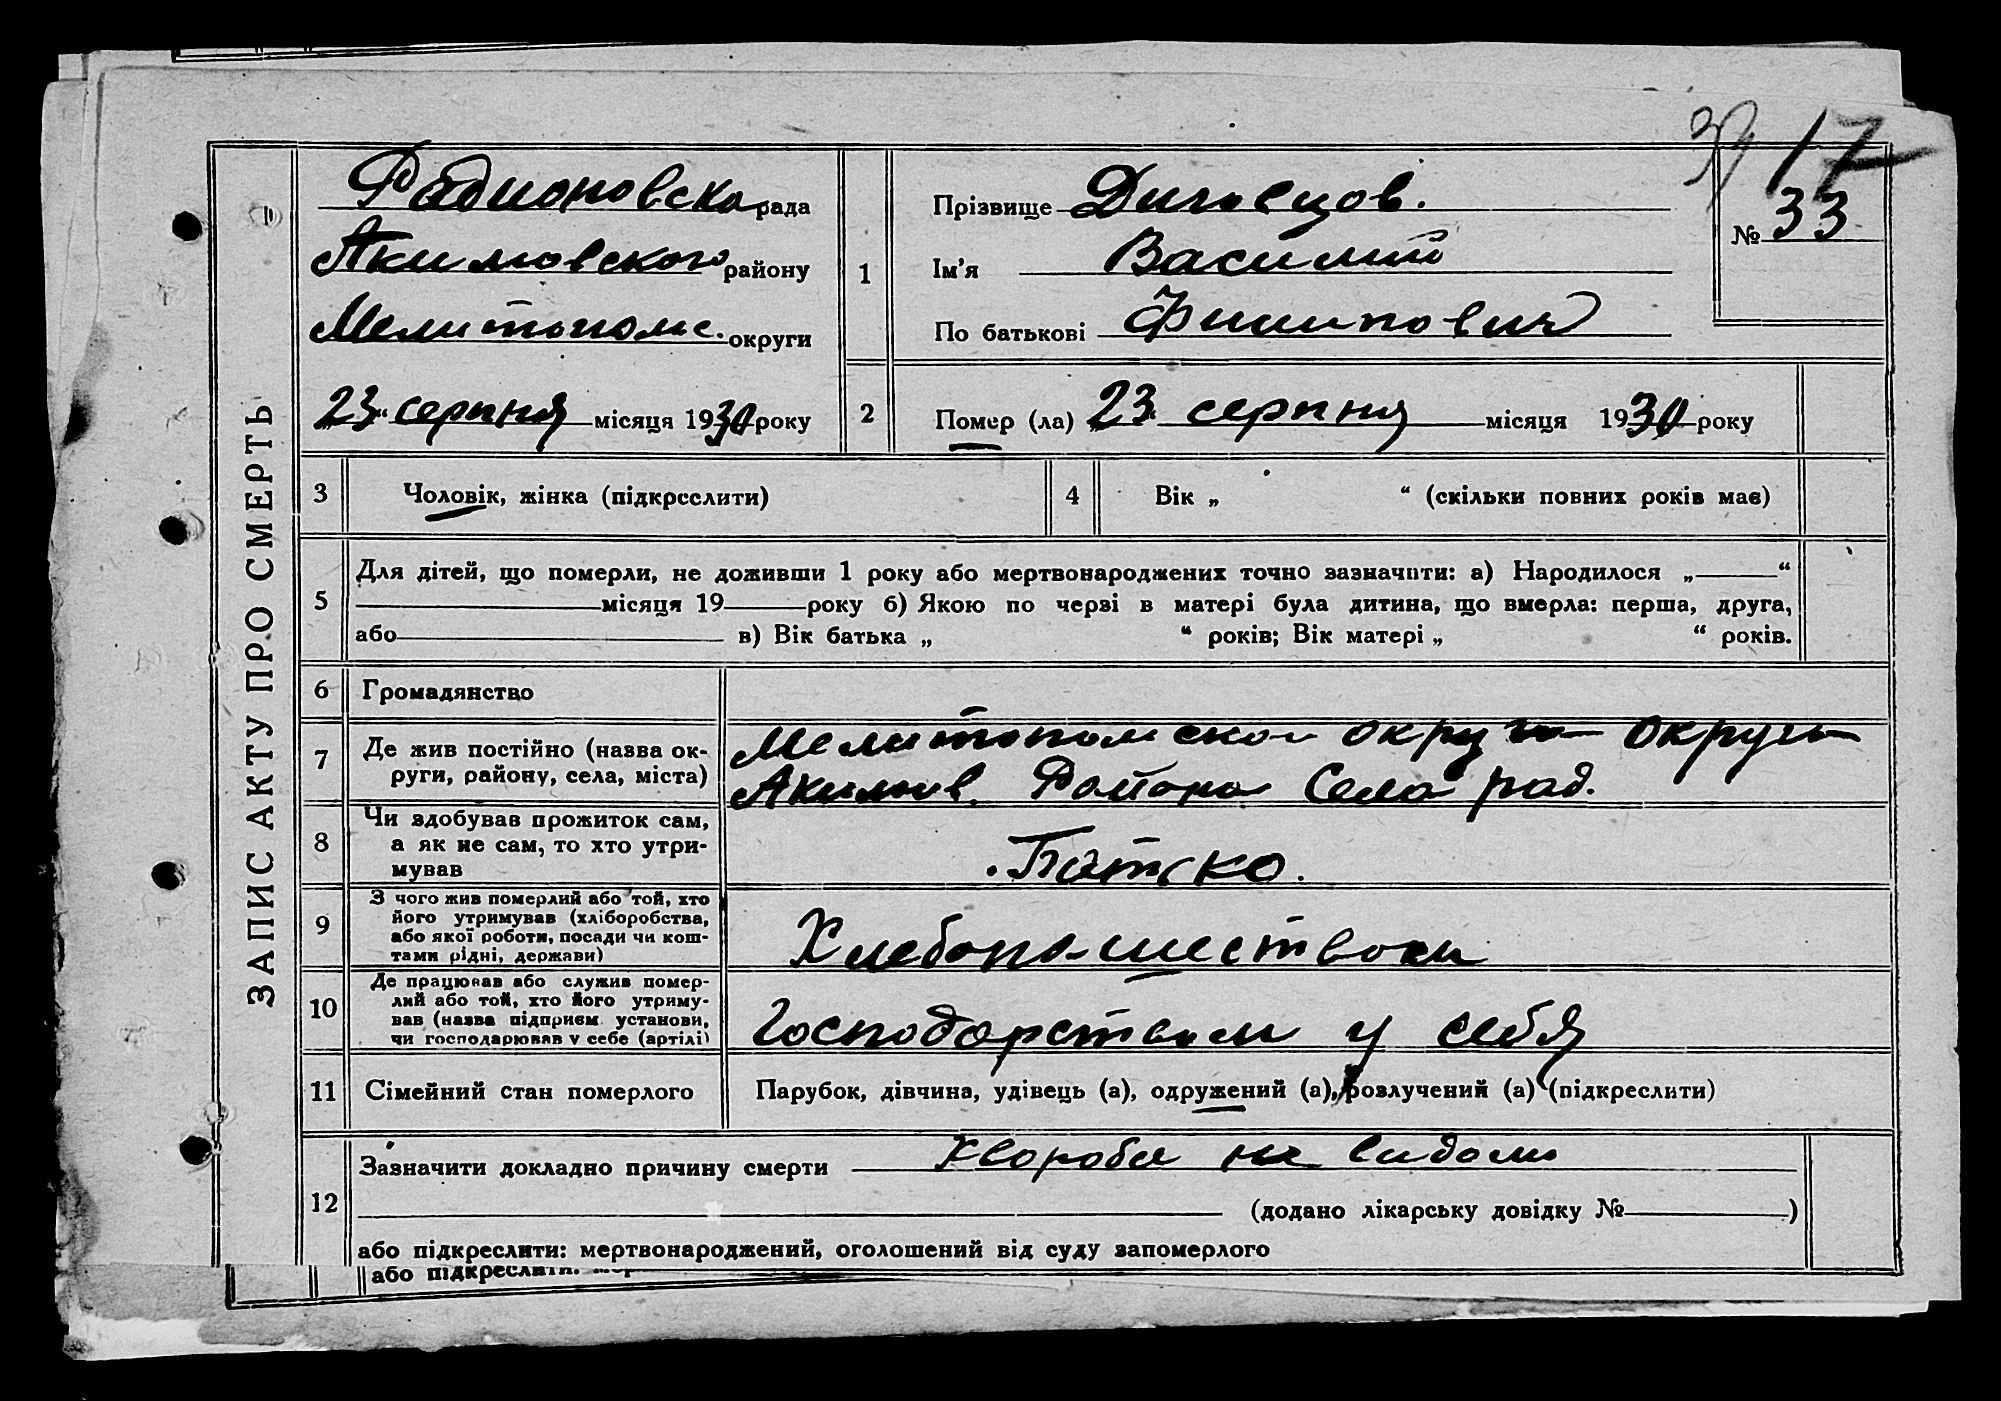 39 17
Радионовска рада
Прізвище Диговцов.
№ 33
Акимовского району
1
Ім'я Василий
Мелитополс. округи
По батькові Филипович
23 серпня місяця 1930 року
2
Помер (ла) 23 серпня місяця 1930 року
ЗАПИС АКТУ ПРО СМЕРТЬ
3 Чоловік, жінка (підкреслити)
4 Вік „ “ (скільки повних років має)
5
Для дітей, що померли, не доживши 1 року або мертвонароджених точно зазначити: а) Народилося „ “
місяця 19 року б) Якою по черві в матері була дитина, що вмерла: перша, друга,
або в) Вік батька „ “ років; Вік матері „ “ років.
6 Громадянство
7 Де жив постійно (назва ок-
руги, району, села, міста)
Мелитополской округи округы
Акимов. Района Села рад.
8 Чи здобував прожиток сам,
а як не сам, то хто утри-
мував
Батько.
9 З чого жив померлий або той, хто
його утримував (хліборобства,
або якої роботи, посади чи кош-
тами рідні, держави)
10 Де працював або служив помер-
лий або той, хто його утриму-
вав (назва підприєм. установи,
чи господарював у себе (артілі)
Господарством у себя
11 Сімейний стан померлого
Парубок, дівчина, удівець (а), одружений (а), розлучений (а) (підкреслити)
12
Зазначити докладно причину смерти Хвороба не видома
(додано лікарську довідку № )
або підкреслити: мертвонароджений, оголошений від суду запомерлого
або підкреслити: